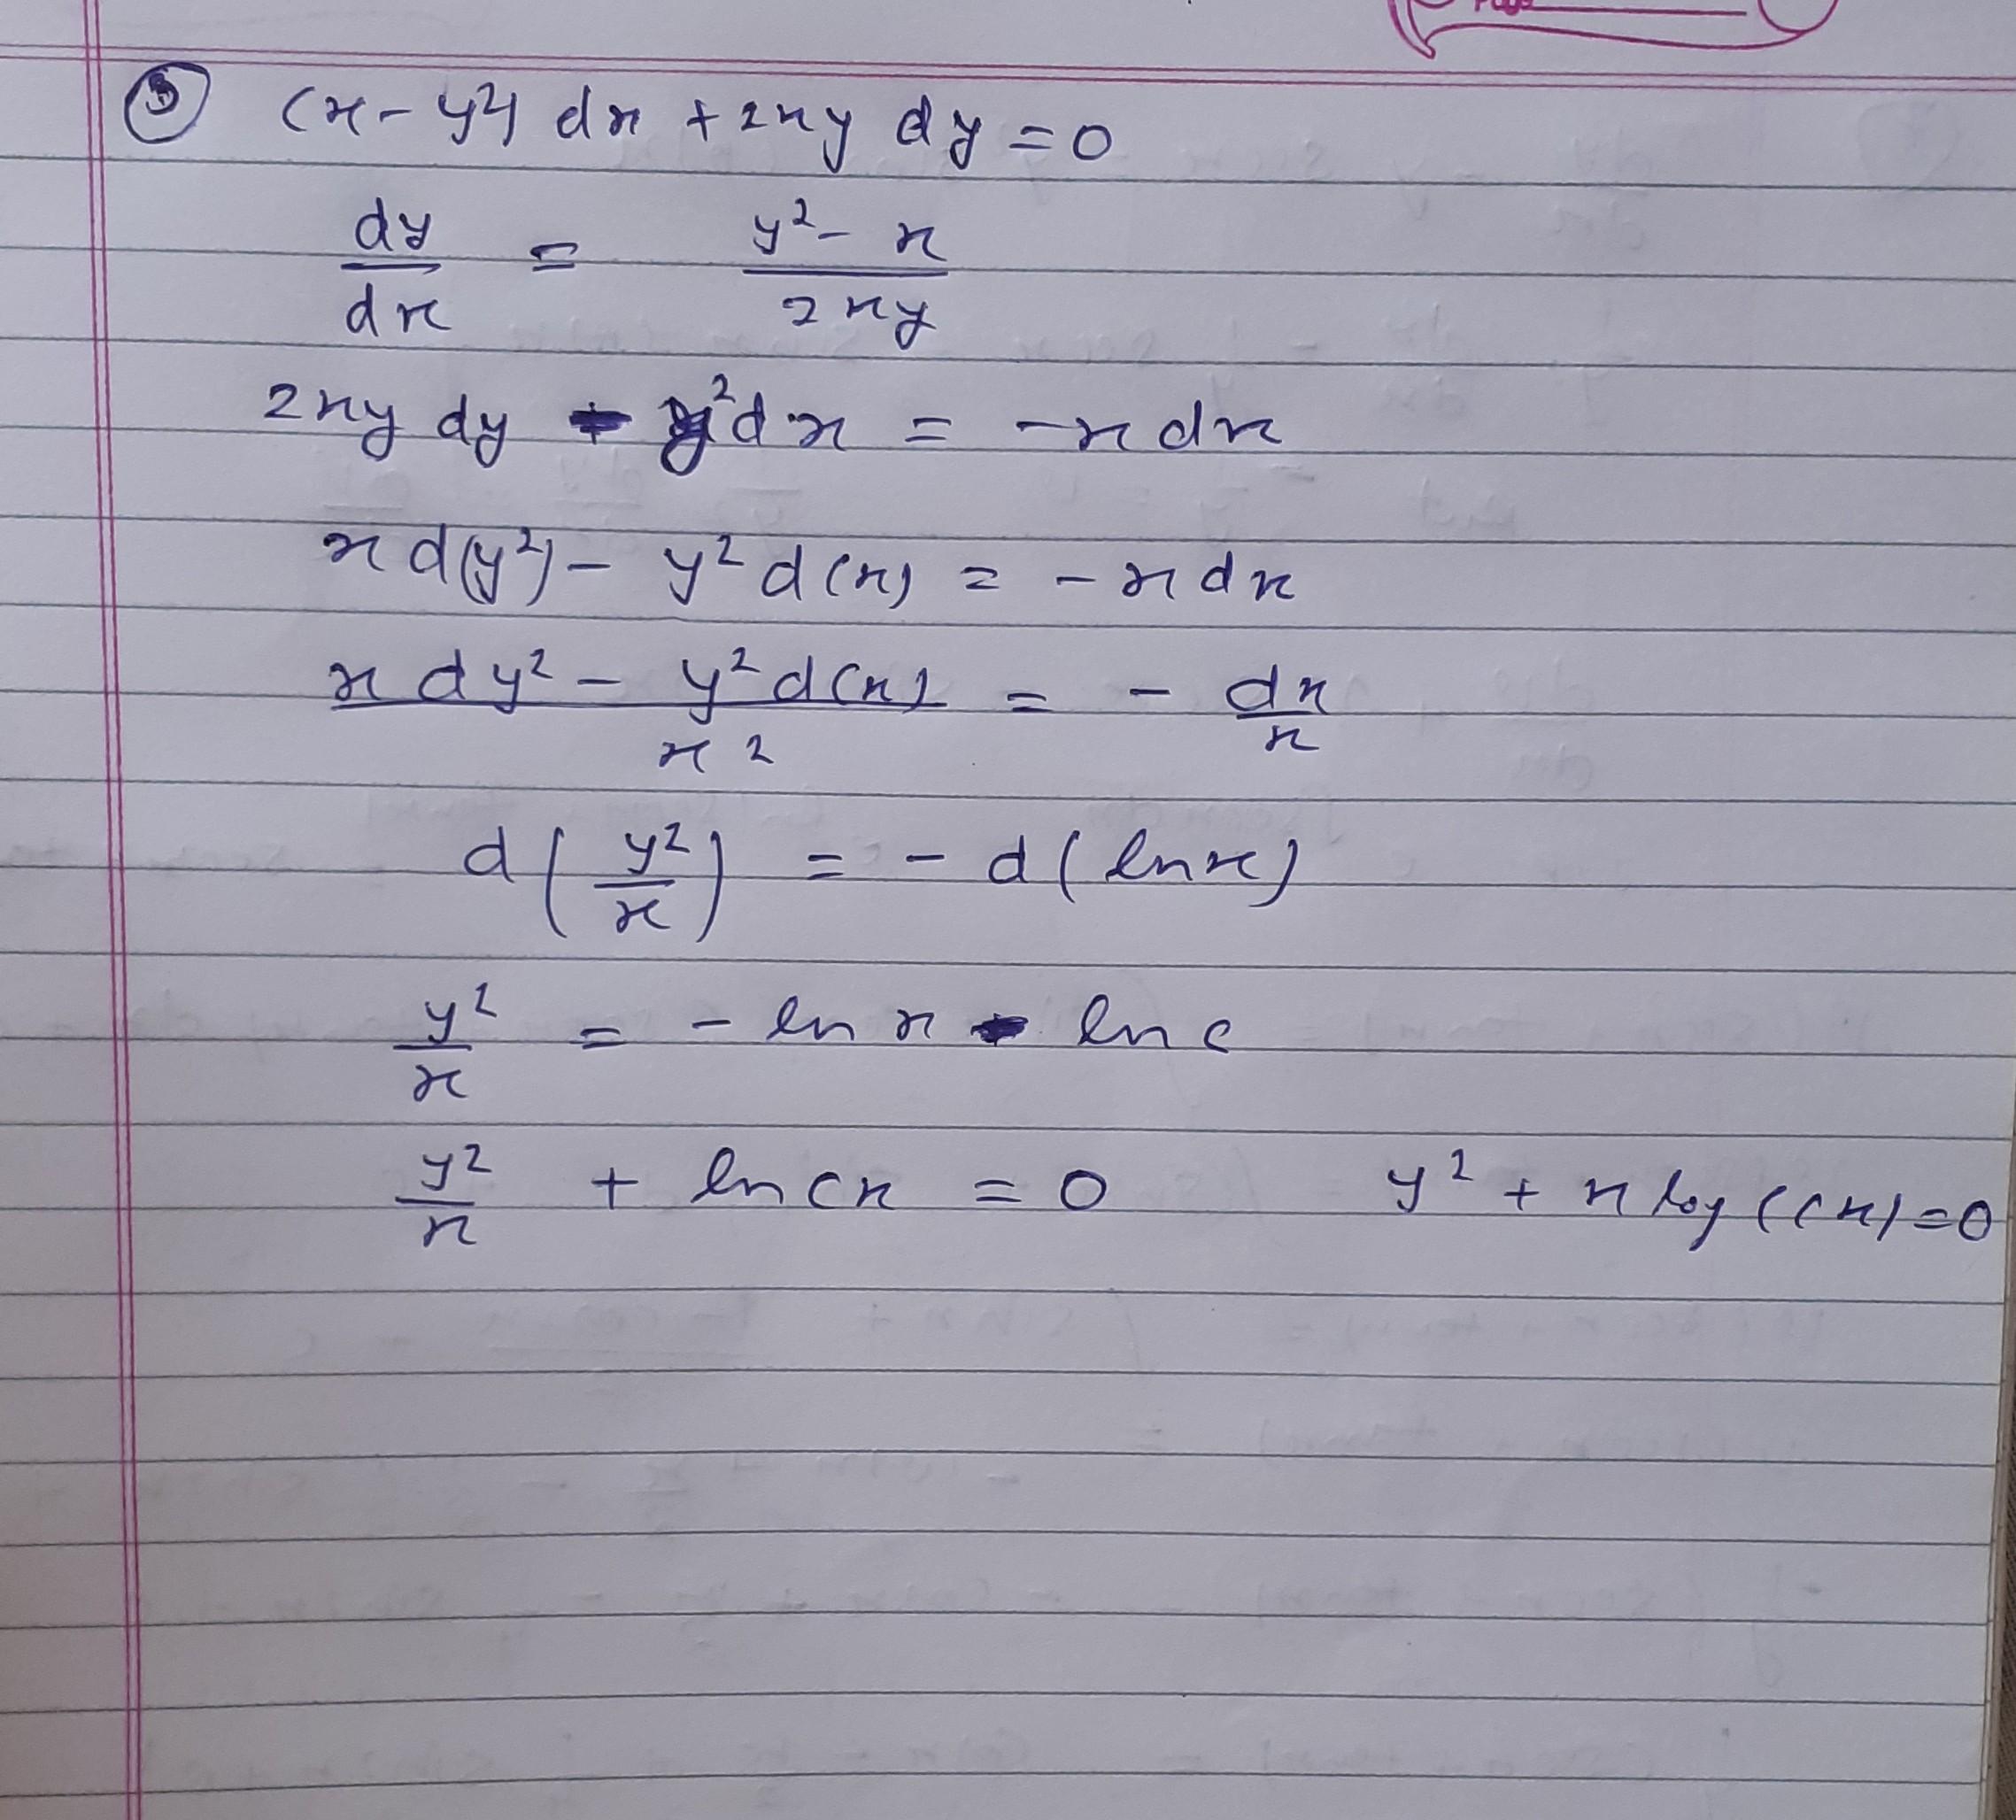 Page
③ (x - y²) dx + 2xy dy = 0
dy/dx = (y² - x)/(2xy)
2xy dy - y² dx = -x dx
x d(y²) - y² d(x) = - x dx
(x dy² - y² d(x))/x² = - dx/x
d(y²/x) = - d(ln x)
y²/x = - ln x - ln c
y²/x + ln cx = 0 y² + x log (cx) = 0